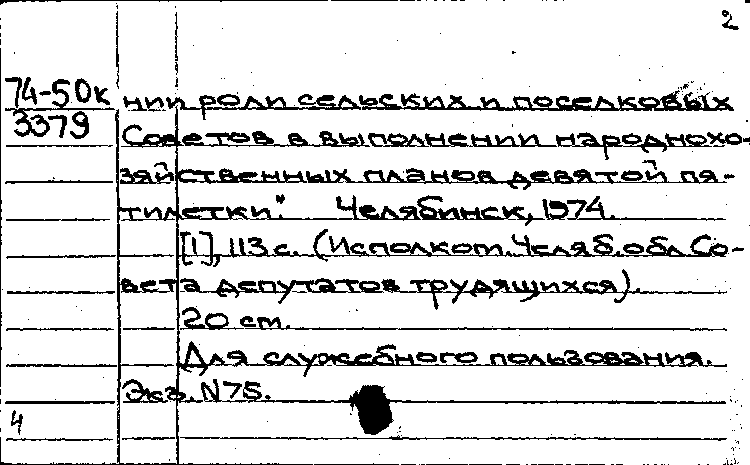 2
74-50к нии роли сельских и поселковых
3379 Советов в выполнении народнохо-
зяйственных планов девятой пя-
тилетки". Челябинск, 1974.
[1], 113 с. (Исполком. Челяб. обл. Со-
вета депутатов трудящихся).
20 см.
Для служебного пользования.
Экз. N75.
4